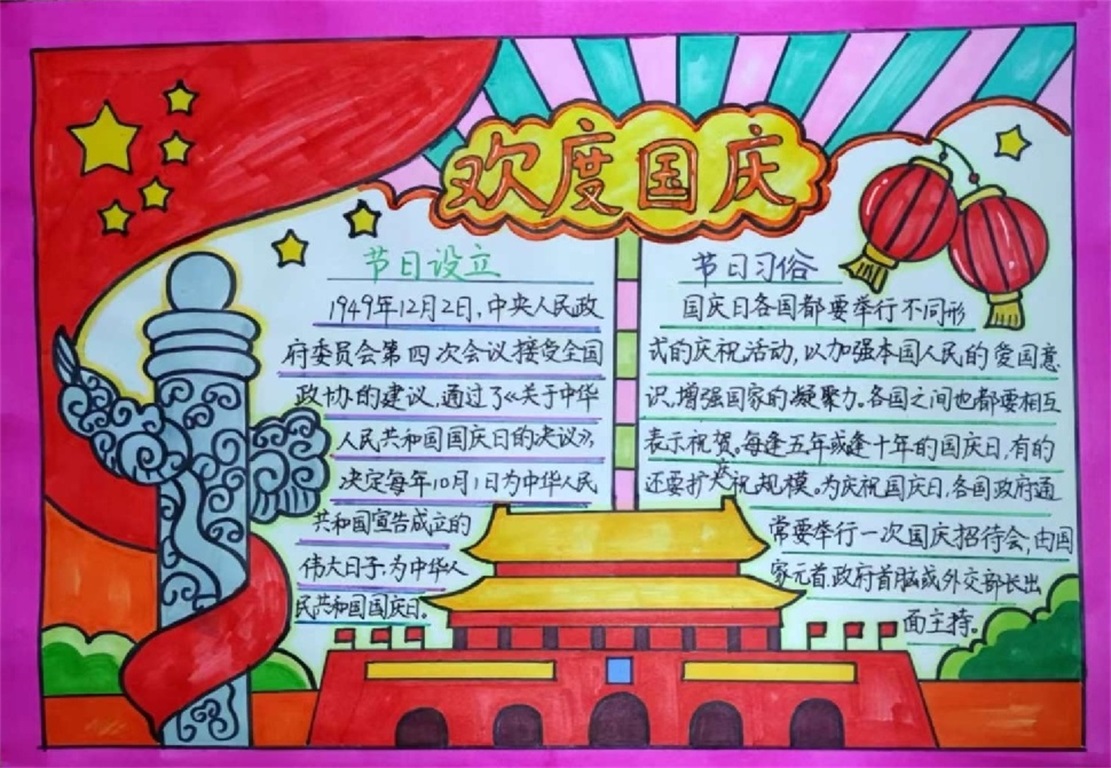 欢度国庆
节日设立
1949年12月2日,中央人民政
府委员会第四次会议接受全国
政协的建议,通过了《关于中华
人民共和国国庆日的决议》,
决定每年10月1日为中华人民
共和国宣告成立的
伟大日子,为中华人
民共和国国庆日。
节日习俗
国庆日各国都要举行不同形
式的庆祝活动,以加强本国人民的爱国意
识,增强国家的凝聚力。各国之间也都要相互
表示祝贺。每逢五年或逢十年的国庆日,有的
还要扩大庆祝规模。为庆祝国庆日,各国政府通
常要举行一次国庆招待会,由国
家元首、政府首脑或外交部长出
面主持。